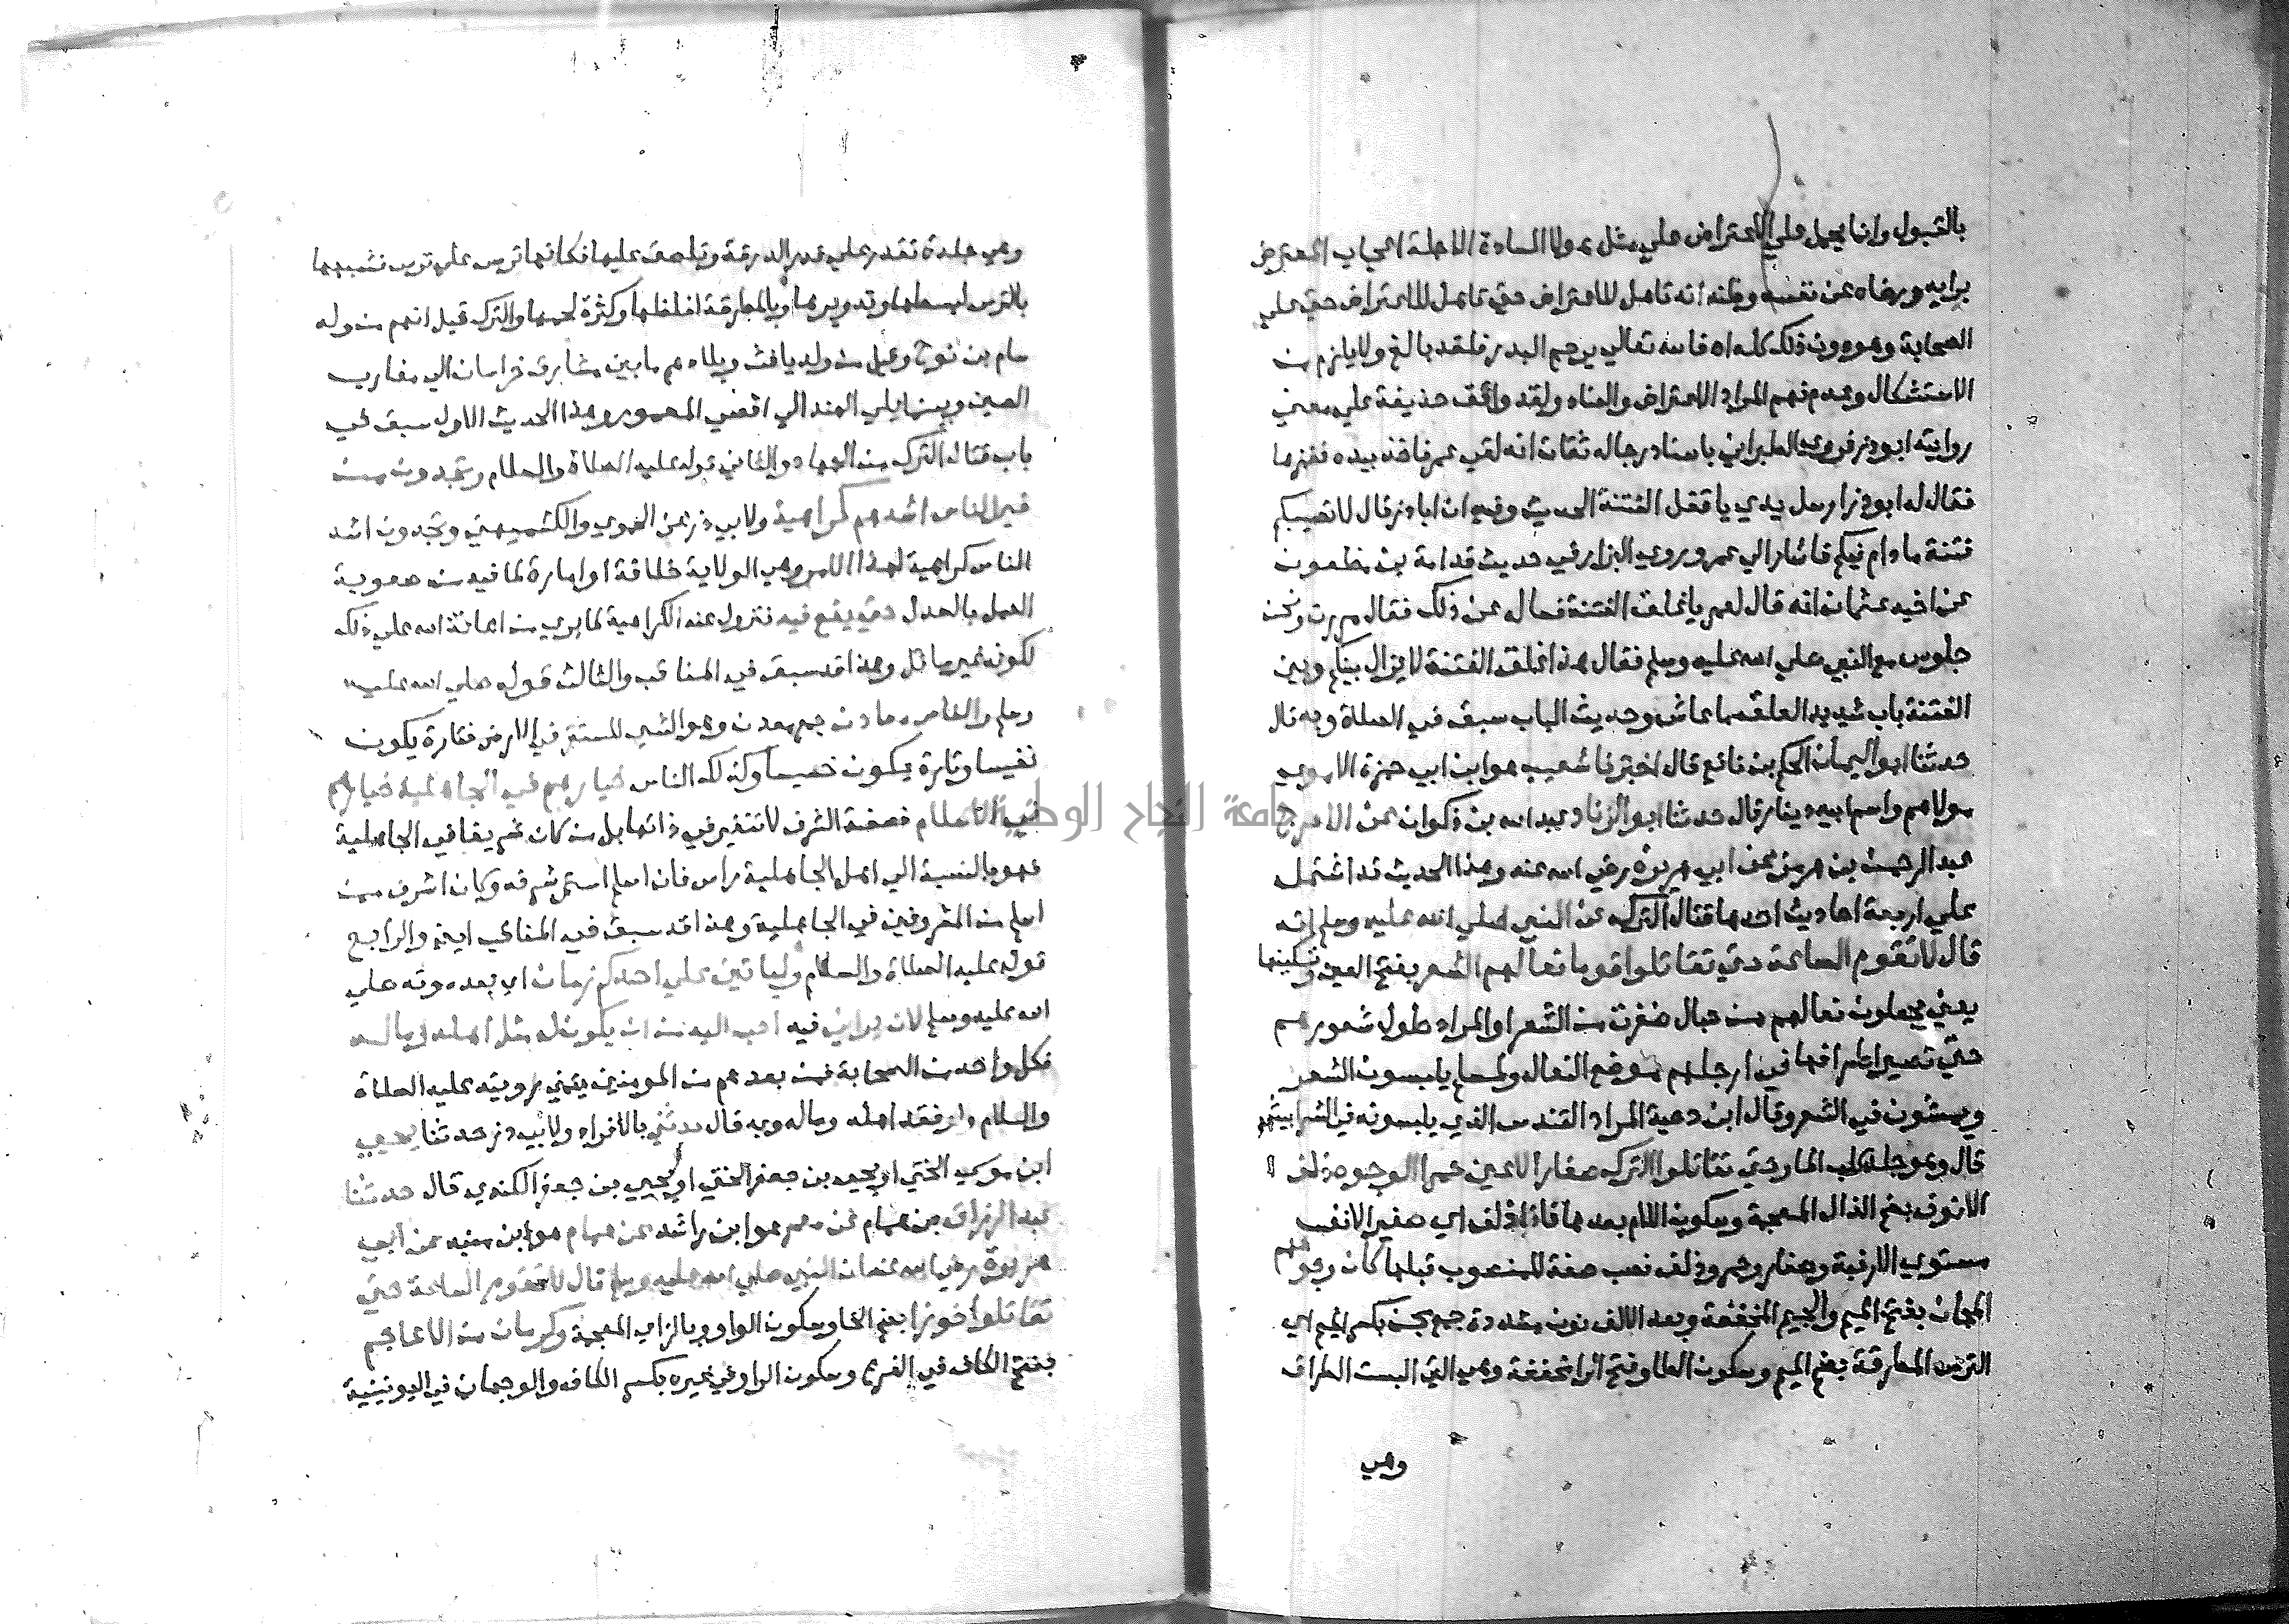 بالقبول وانما يحمل علي الاعتراض علي مثل هولا السادة الاجلة اعجاب المعترض
برايه ورضاه عن نفسه وظنه انه تاهل للاعتراض حتي تاهل للاعتراض حتي علي
الصحابة وهو دون ذلك كله اه فالله تعالي يرحم البدر فلقد بالغ ولا يلزم من
الاستشكال وعدم فهم المراد الاعتراض والعناد ولقد وافق حذيفة علي معني
روايته ابو ذر فروي الطبراني باسناد رجاله ثقات انه لقي عمر فاخذ بيده فغمزها
فقال له ابو ذر ارسل يدي يا قفل الفتنة الحديث وفيه ان ابا ذر قال لا تصيبكم
فتنة ما دام فيكم فاشار الي عمر وروي البزار في حديث قدامة بن مظعون
عن اخيه عثمان انه قال لعمر يا غلق الفتنة فسال عن ذلك فقال مررت ونحن
جلوس مع النبي صلي الله عليه وسلم فقال هذا غلق الفتنة لا يزال بينكم وبين
الفتنة باب شديد الغلق ما عاش وحديث الباب سبق في الصلاة وبه قال
حدثنا ابو اليمان الحكم بن نافع قال اخبرنا شعيب هو ابن ابي حمزة الاموي
مولاهم واسم ابيه دينار قال حدثنا ابو الزناد عبد الله بن ذكوان عن الاعرج
عبد الرحمن بن هرمز عن ابي هريرة رضي الله عنه وهذا الحديث قد اشتمل
علي اربعة احاديث احدها قتال الترك عن النبي صلي الله عليه وسلم انه
قال لا تقوم الساعة حتي تقاتلوا قوما نعالهم الشعر بفتح العين وتسكينها
يعني يجعلون نعالهم من حبال ضفرت من الشعر او المراد طول شعورهم
حتي تصير اطرافها في ارجلهم موضع النعال ولمسلم يلبسون الشعر
ويمشون في الشعر وقال ابن دحية المراد القندس الذي يلبسونه في الشرابيش
قال وهو جلد كلب الما وحتي تقاتلوا الترك صغار الاعين حمر الوجوه ذلف
الانوف بضم الذال المعجمة وسكون اللام بعدها فا اذلف اي صغير الانف
مستوي الارنبة وصغار وحمر وذلف نصب صفة للمنصوب قبلها كان وجوههم
المجان بفتح الميم والجيم المخففة وبعد الالف نون مشددة جمع مجن بكسر الميم اي
الترس المطرقة بضم الميم وسكون الطا وفتح الرا مخففة وهي التي البست الطراق
وهي
وهي جلدة تقدر علي قدر الدرقة وتلصق عليها فكانها ترس علي ترس فشبهها
بالترس لبسطها وتدويرها وبالمطرقة لغلظها وكثرة لحمها والترك قيل انهم من ولد
سام بن نوح وقيل من ولد يافث وبلادهم ما بين مشارق خراسان الي مغارب
الصين وبين ما يلي الهند الي اقصي المعمور وهذا الحديث الاول سبق في
باب قتال الترك من الجهاد والثاني قوله عليه الصلاة والسلام وتجدون من
خير الناس اشدهم كراهية ولابي ذر عن الحموي والكشميهني وتجدون اشد
الناس كراهية لهذا الامر وهي الولاية خلافة او امارة لما فيه من صعوبة
العمل بالعدل حتي يقع فيه فتزول عنه الكراهية لما يري من اعانة الله علي ذلك
لكونه غير سائل وهذا قد سبق في المناقب والثالث قوله صلي الله عليه
وسلم والناس معادن جمع معدن وهو الشي المستقر في الارض فتارة يكون
نفيسا وتارة يكون خسيسا وكذلك الناس خيارهم في الجاهلية خيارهم
في الاسلام فصفة الشرف لا تتغير في ذاتها بل من كان شريفا في الجاهلية
فهو بالنسبة الي اهل الجاهلية راس فان اسلم استمر شرفه وكان اشرف ممن
اسلم من المشروفين في الجاهلية وهذا قد سبق في المناقب ايضا والرابع
قوله عليه الصلاة والسلام ولياتين علي احدكم زمان اي بعد موته صلي
الله عليه وسلم لان يراني فيه احب اليه من ان يكون له مثل اهله وماله
فكل واحد من الصحابة فمن بعدهم من المومنين يتمني رويته عليه الصلاة
والسلام ولو فقد اهله وماله وبه قال حدثني بالافراد ولابي ذر حدثنا يحيي
ابن موسي الختي او يحيي بن جعفر الختي او يحيي بن جعفر الكندي قال حدثنا
عبد الرزاق بن همام عن معمر هو ابن راشد عن همام هو ابن منبه عن ابي
هريرة رضي الله عنه ان النبي صلي الله عليه وسلم قال لا تقوم الساعة حتي
تقاتلوا خوزا بضم الخا وسكون الواو وبالزاي المعجمة وكرمان من الاعاجم
بفتح الكاف في الفرع وسكون الرا وفي غيره بكسر الكاف والوجهان في اليونينية
جامعة النجاح الوطنية